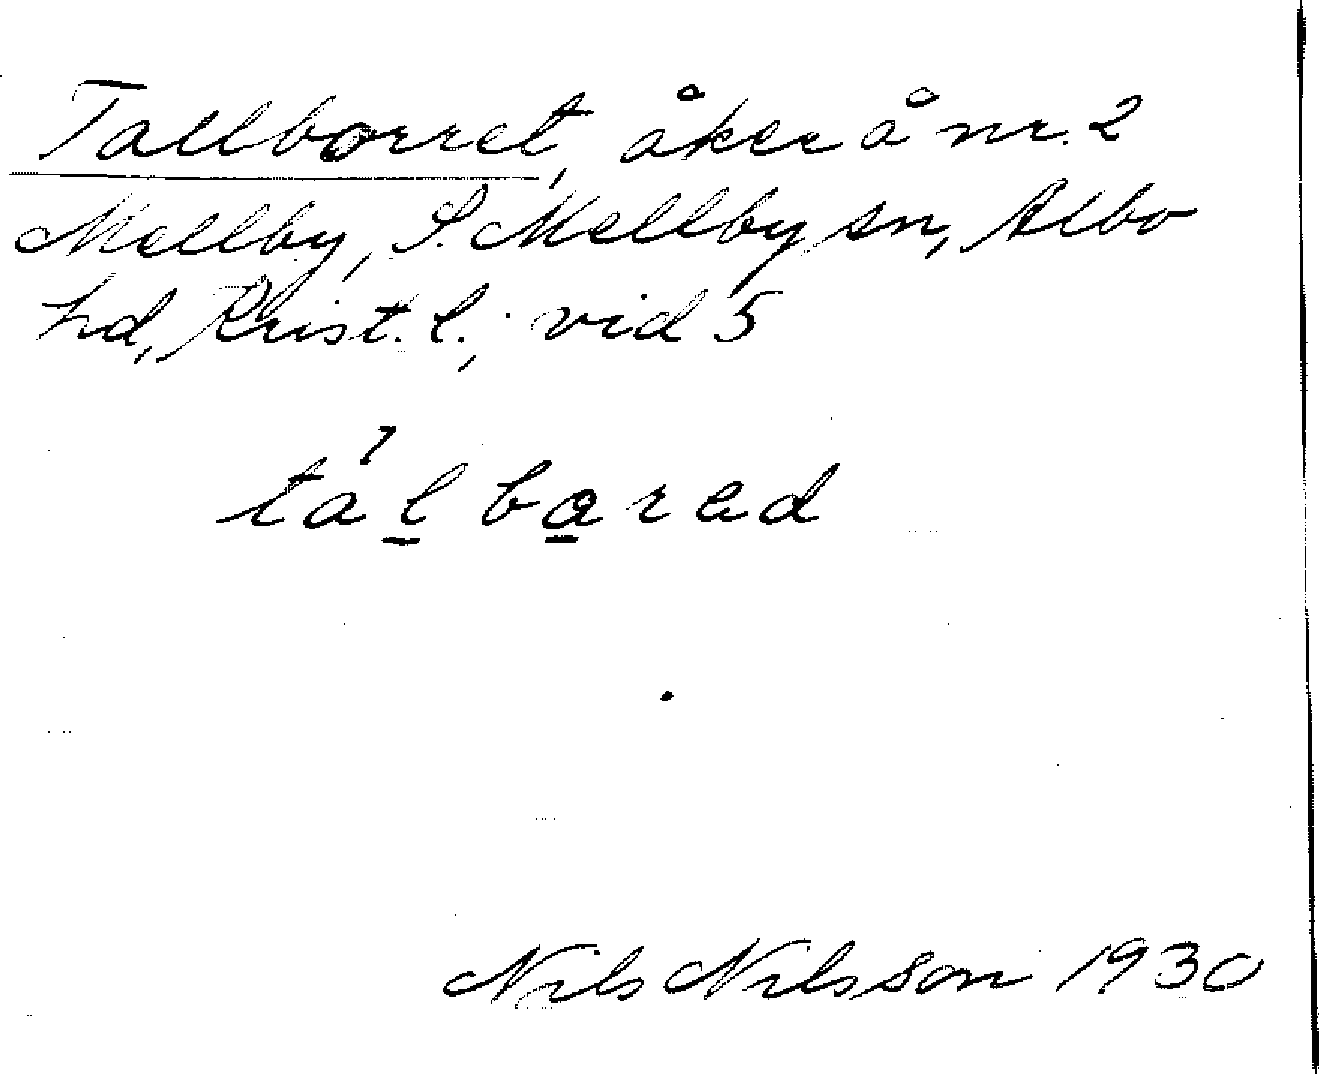 Tallborret, åker å nr. 2
Mellby, S. Mellby sn, Albo
hd, Krist. l.; vid 5
tál̲ bo̲rəd
Nils Nilsson 1930